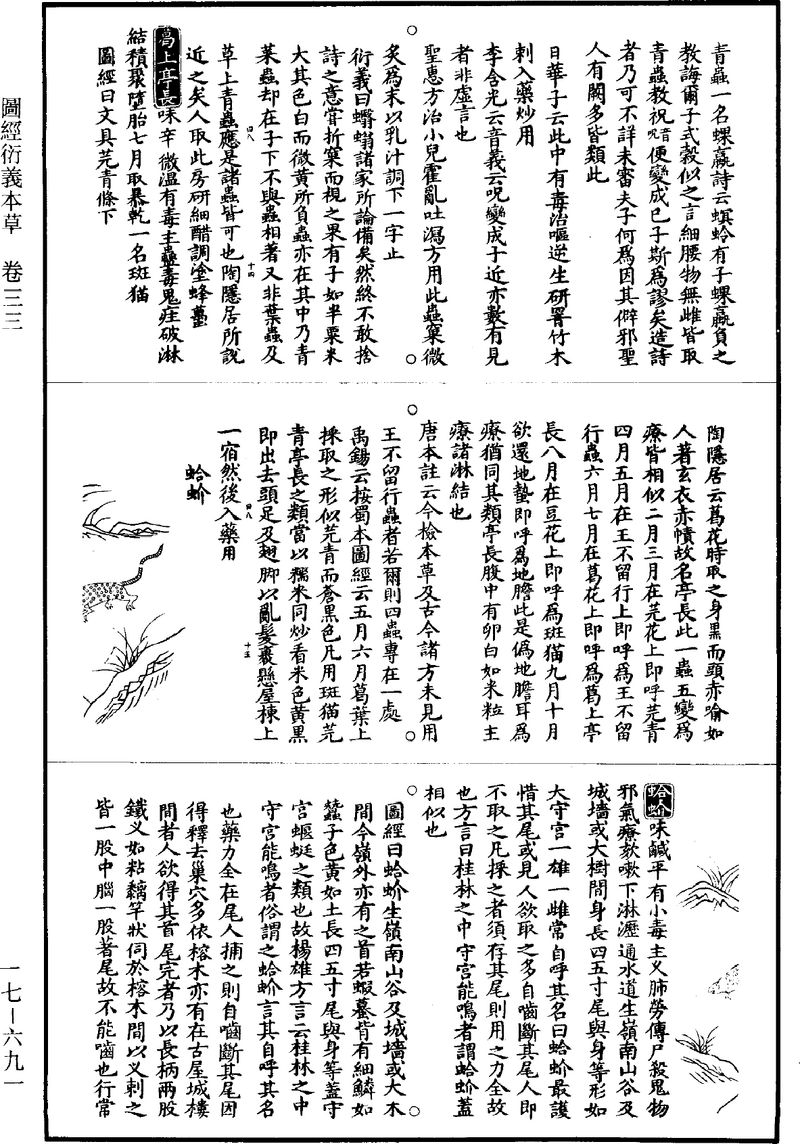 圖經衍義本草　卷三三
青蟲一名蜾蠃詩云螟蛉有子蜾蠃負之
教誨爾子式穀似之言細腰物無雌皆取
青蟲教祝音呪便變成已子斯為謬矣造詩
者乃可不詳未審夫子何為因其僻邪聖
人有闕多皆類此
日華子云此中有毒治嘔逆生研罯竹木
刺入藥炒用
李含光云音義云呪變成子近亦數有見
者非虛言也
聖惠方治小兒霍亂吐瀉方用此蟲窠微
炙為末以乳汁調下一字止
衍義曰蠮螉諸家所論備矣然終不敢捨
詩之意嘗折窠而視之果有子如半粟米
大其色白而微黃所負蟲亦在其中乃青
菜蟲却在子下不與蟲相著又非葉蟲及
草上青蟲應是諸蟲皆可也陶隱居所說
四八
十四
近之矣人取此房研細醋調塗蜂蠆
葛上亭長味辛微溫有毒主蠱毒鬼疰破淋
結積聚墮胎七月取暴乾一名斑猫
圖經曰文具芫青條下
陶隱居云葛花時取之身黑而頭赤喻如
人著玄衣赤幘故名亭長此一蟲五變為
療皆相似二月三月在芫花上即呼芫青
四月五月在王不留行上即呼為王不留
行蟲六月七月在葛花上即呼為葛上亭
長八月在豆花上即呼為斑猫九月十月
欲還地蟄即呼為地膽此是偽地膽耳為
療猶同其類亭長腹中有卵白如米粒主
療諸淋結也
唐本註云今檢本草及古今諸方未見用
王不留行蟲者若爾則四蟲專在一處
禹錫云按蜀本圖經云五月六月葛葉上
採取之形似芫青而蒼黑色凡用斑猫芫
青亭長之類當以糯米同炒看米色黃黑
即出去頭足及翅脚以亂髮裹懸屋棟上
四八
十五
一宿然後入藥用
蛤蚧
蛤蚧味鹹平有小毒主久肺勞傳尸殺鬼物
邪氣療欬嗽下淋瀝通水道生嶺南山谷及
城墻或大樹間身長四五寸尾與身等形如
大守宮一雄一雌常自呼其名曰蛤蚧最護
惜其尾或見人欲取之多自嚙斷其尾人即
不取之凡採之者須存其尾則用之力全故
也方言曰桂林之中守宮能鳴者謂蛤蚧蓋
相似也
圖經曰蛤蚧生嶺南山谷及城墻或大木
間今嶺外亦有之首若蝦蟇背有細鱗如
蠶子色黃如土長四五寸尾與身等蓋守
宮蝘蜓之類也故楊雄方言云桂林之中
守宮能鳴者俗謂之蛤蚧言其自呼其名
也藥力全在尾人捕之則自嚙斷其尾因
得釋去巢穴多依榕木亦有在古屋城樓
間者人欲得其首尾完者乃以長柄兩股
鐵叉如粘黐竿狀伺於榕木間以叉刺之
皆一股中腦一股著尾故不能嚙也行常
一七—六九一